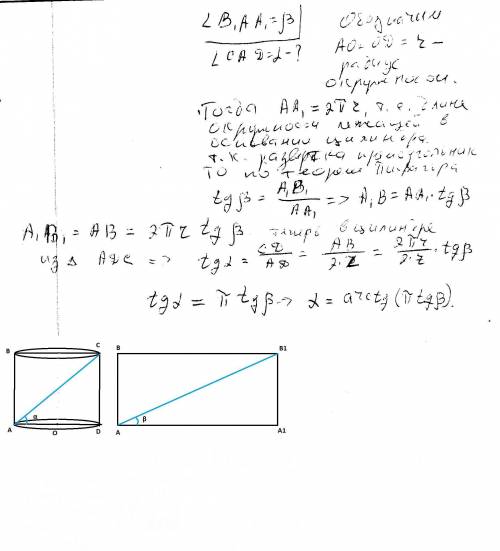 ∠B₁AA₁ = β
∠CAD = α - ?
Обозначим
AO = OD = r –
радиус
окружности.
Тогда AA₁ = 2πr, т.е. длина
окружности лежащей в
основании цилиндра.
т.к. развертка прямоугольник
то по теореме Пифагора
tgβ = A₁B₁/AA₁ => A₁B = AA₁·tgβ
A₁B₁ = AB = 2πr tgβ теперь в цилиндре
из Δ ADC => tgα = CD/AD = AB/2·r = 2πr/2·r · tgβ
tgα = π tgβ → α = arctg(π tgβ).
B C B B1
α β
A O D A A1